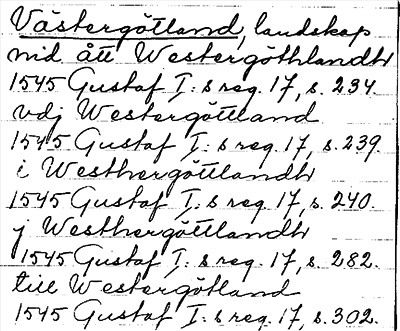 Västergötland, landskap
nid ått Westergöthlandh
1545 Gustaf I: s reg. 17, s. 234.
vdj Westergöttland
1545 Gustaf I: s reg. 17, s. 239.
i Westhergöttlandh
1545 Gustaf I: s reg. 17, s. 240.
j Westhergöttlandh
1545 Gustaf I: s reg. 17, s. 282.
till Westergötland
1545 Gustaf I: s reg. 17, s. 302.